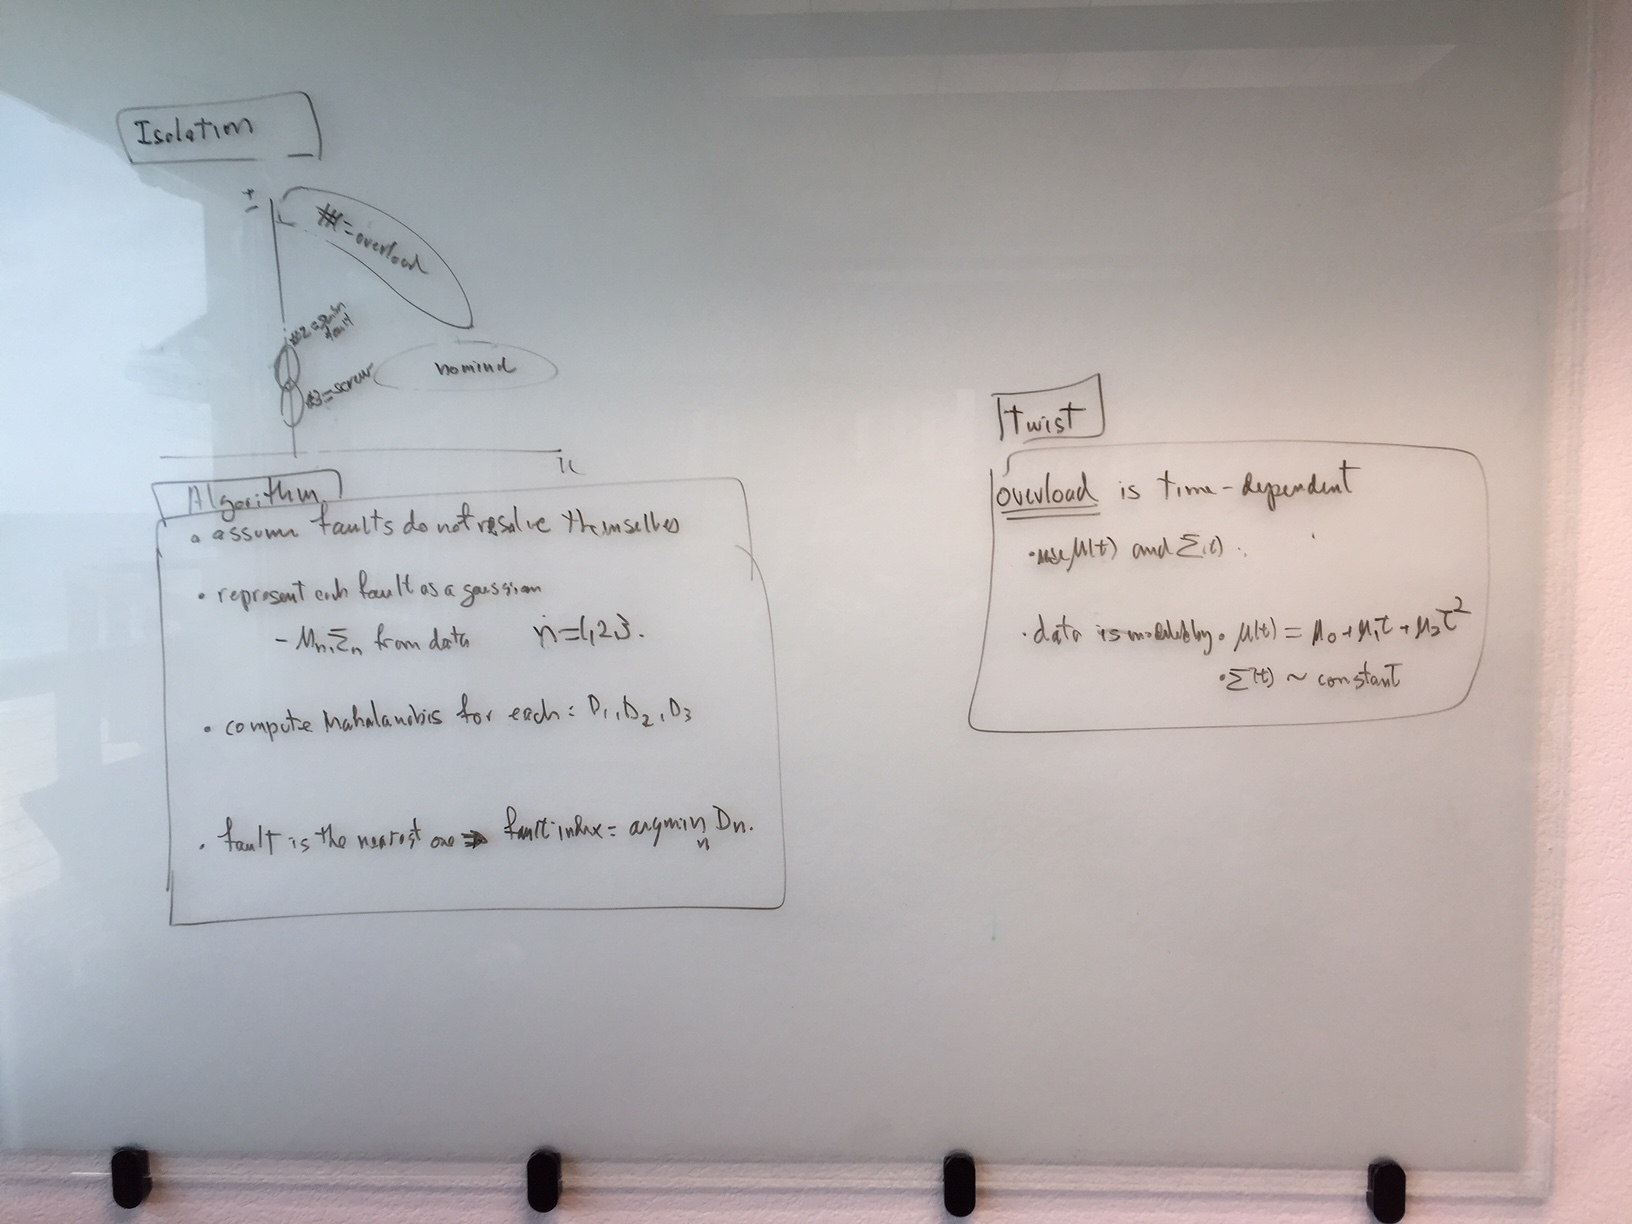 Isolation
#1=overload
fault
#3=screw
nominal
Algorithm
• assume faults do not resolve themselves
• represent each fault as a gaussian
- μn, Σn from data n=1,2,3.
• compute Mahalanobis for each: D1, D2, D3
• fault is the nearest one ⇒ fault index = argmin Dn.
n
twist
overload is time-dependent
• use μ(t) and Σ(t)
• data is modeled by • μ(t) = μ0 + μ1t + μ2t²
• Σ(t) ~ constant